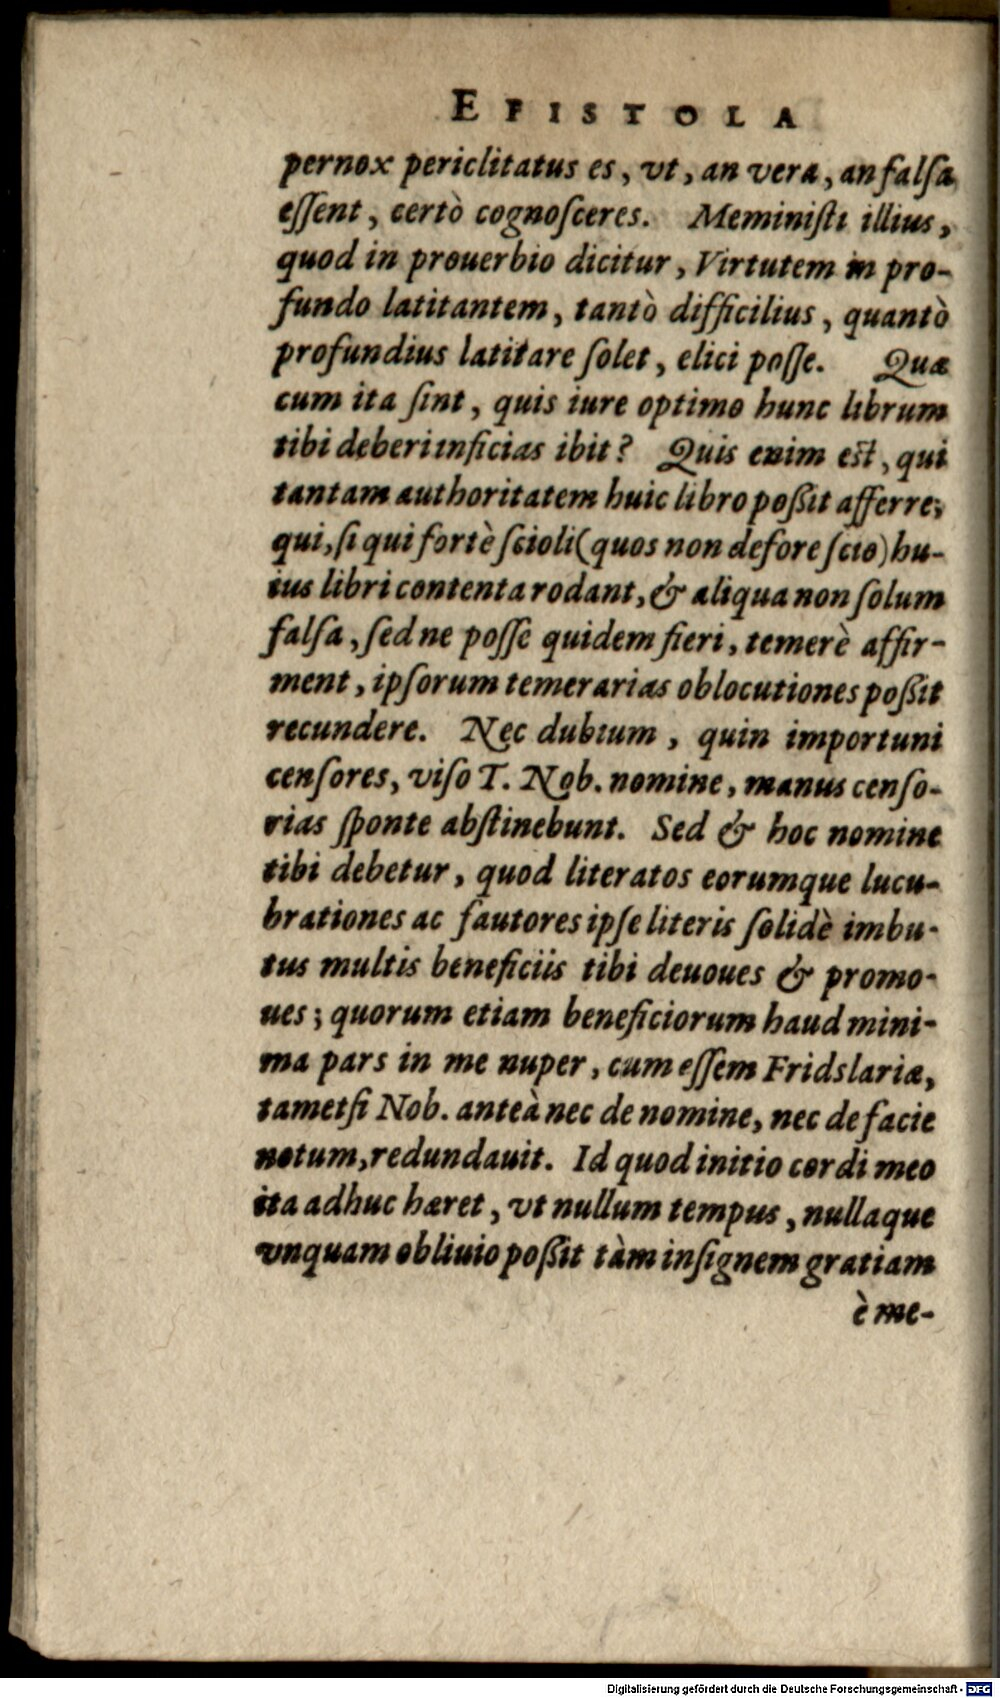 EPISTOLA
pernox periclitatus es, vt, an vera, an falſa
eſſent, certò cognoſceres. Meminiſti illius,
quod in prouerbio dicitur, Virtutem in pro-
fundo latitantem, tantò difficilius, quantò
profundius latitare ſolet, elici poſſe. Quæ
cum ita ſint, quis iure optimo hunc librum
tibi deberi inficias ibit? Quis enim eſt, qui
tantam authoritatem huic libro poßit afferre;
qui, ſi qui fortè ſcioli (quos non defore ſcio) hu-
ius libri contenta rodant, & aliqua non ſolum
falſa, ſed ne poſſe quidem fieri, temerè affir-
ment, ipſorum temerarias oblocutiones poßit
recundere. Nec dubium, quin importuni
cenſores, viſo T. Nob. nomine, manus cenſo-
rias ſponte abſtinebunt. Sed & hoc nomine
tibi debetur, quod literatos eorumque lucu-
brationes ac fautores ipſe literis ſolidè imbu-
tus multis beneficiis tibi deuoues & promo-
ues; quorum etiam beneficiorum haud mini-
ma pars in me nuper, cum eſſem Fridslariæ,
tametſi Nob. anteà nec de nomine, nec de facie
notum, redundauit. Id quod initio cordi meo
ita adhuc hæret, vt nullum tempus, nullaque
vnquam obliuio poßit tàm inſignem gratiam
è me-
Digitalisierung gefördert durch die Deutsche Forschungsgemeinschaft - DFG